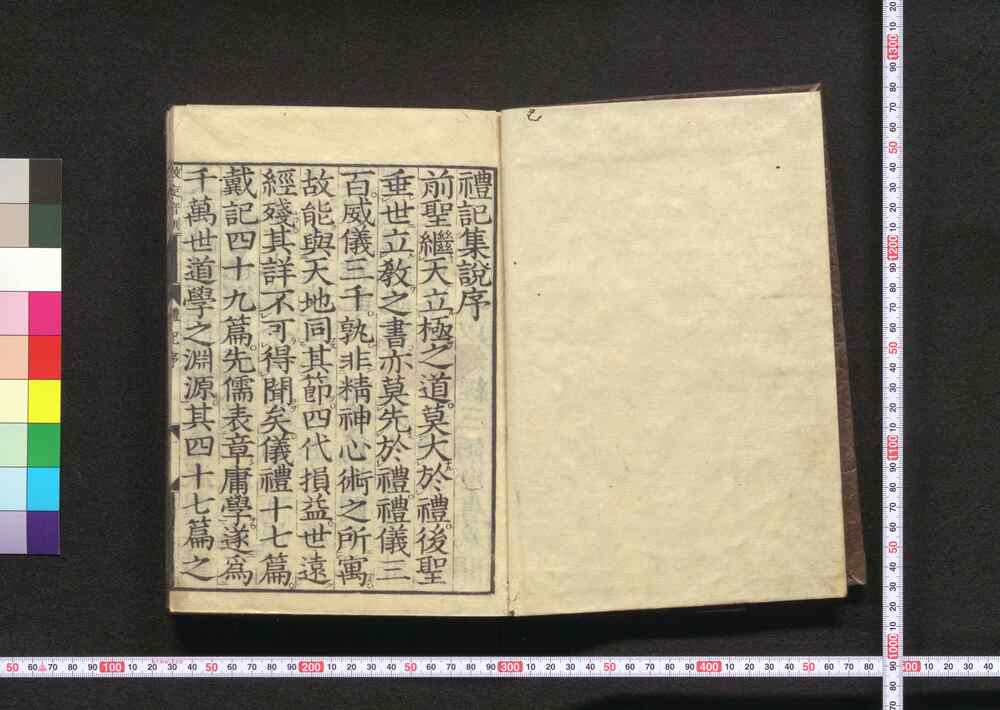 禮記集說序
前聖繼天立極之道莫大於禮後聖
垂世立敎之書亦莫先於禮禮儀三
百威儀三千孰非精神心術之所寓
故能與天地同其節四代損益世遠
經殘其詳不可得聞矣儀禮十七篇
戴記四十九篇先儒表章庸學遂爲
千萬世道學之淵源其四十七篇之